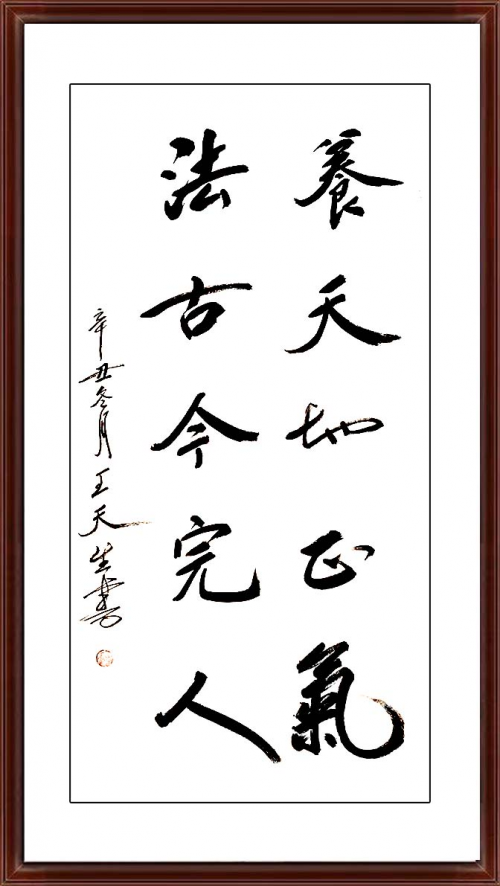 養天地正氣
法古今完人
辛丑冬月王天生書